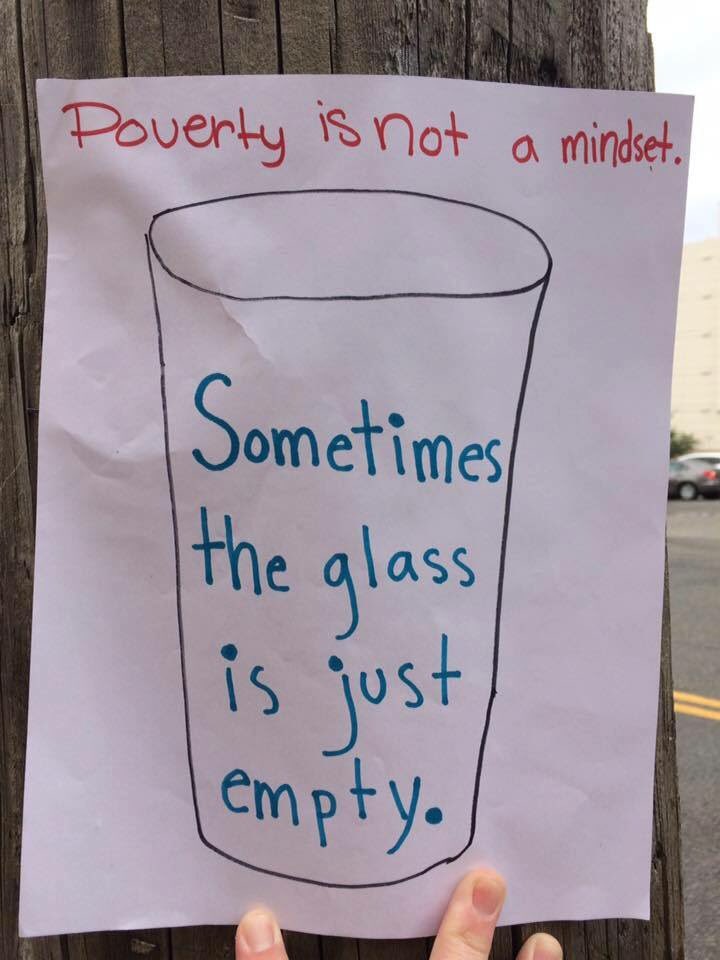 Poverty is not a mindset.
Sometimes
the glass
is just
empty.